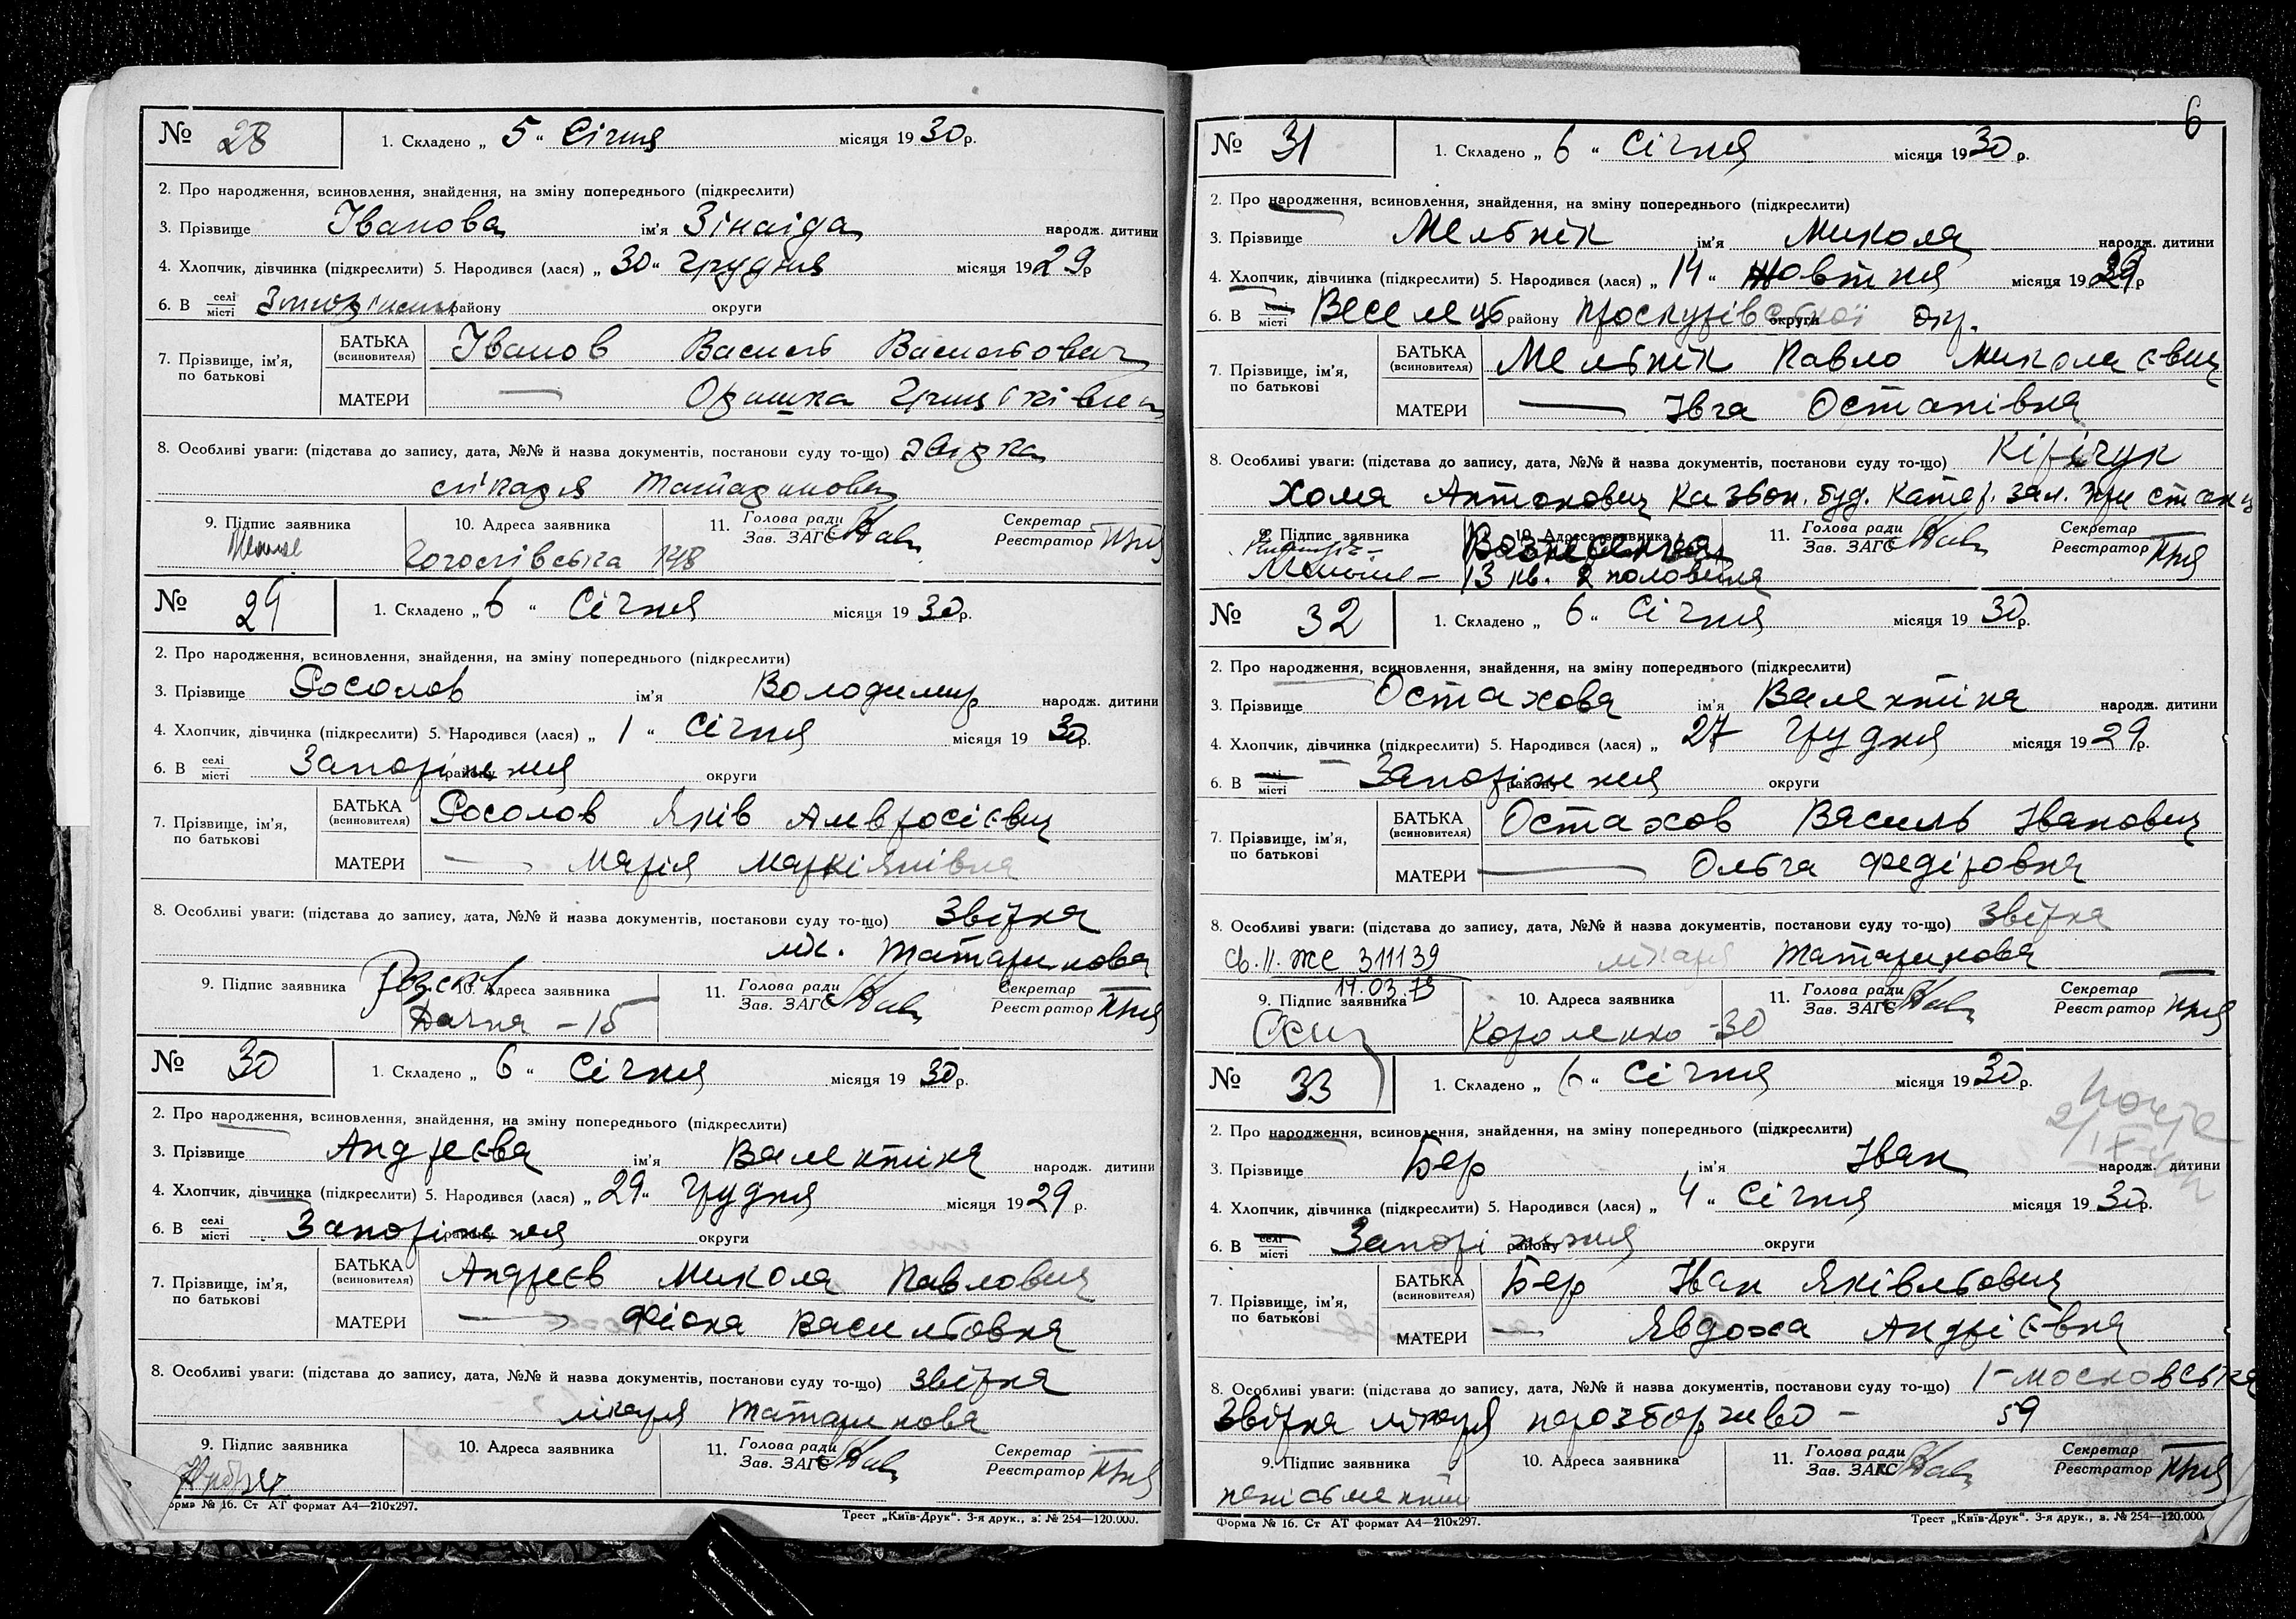 № 28
1. Складено „ 5 “ Січня місяця 1930 р.
2. Про народження, всиновлення, знайдення, на зміну попереднього (підкреслити)
3. Прізвище Іванова ім'я Зінаіда народж. дитини
4. Хлопчик, дівчинка (підкреслити) 5. Народився (лася) „ 30 “ Грудня місяця 1929 р
6. В селі місті району округи
7. Прізвище, ім'я, по батькові
БАТЬКА (всиновителя) Іванов Василь Васильович
МАТЕРИ — Оришка
8. Особливі уваги: (підстава до запису, дата, №№ й назва документів, постанови суду то-що)
лікаря Татаринова
9. Підпис заявника 10. Адреса заявника 11. Голова ради Зав. ЗАГС Секретар Реєстратор
№ 29
1. Складено „ 6 “ Січня місяця 1930 р.
2. Про народження, всиновлення, знайдення, на зміну попереднього (підкреслити)
3. Прізвище Росолов ім'я Володимир народж. дитини
4. Хлопчик, дівчинка (підкреслити) 5. Народився (лася) „ 1 “ Січня місяця 19 30 р.
6. В селі місті Запоріжжя району округи
7. Прізвище, ім'я, по батькові
БАТЬКА (всиновителя) Росолов Яків Амвросієвич
МАТЕРИ — Марія Маркіянівна
8. Особливі уваги: (підстава до запису, дата, №№ й назва документів, постанови суду то-що) Звірка
лік. Татаринова
9. Підпис заявника 10. Адреса заявника 11. Голова ради Зав. ЗАГС Секретар Реєстратор
Дачна - 15
№ 30
1. Складено „ 6 “ Січня місяця 19 30 р.
2. Про народження, всиновлення, знайдення, на зміну попереднього (підкреслити)
3. Прізвище Андреєва ім'я Валентина народж. дитини
4. Хлопчик, дівчинка (підкреслити) 5. Народився (лася) „ 29 “ Грудня місяця 1929 р.
6. В селі місті Запоріжжя району округи
7. Прізвище, ім'я, по батькові
БАТЬКА (всиновителя) Андреєв Микола Павлович
МАТЕРИ — Фіона Васильовна
8. Особливі уваги: (підстава до запису, дата, №№ й назва документів, постанови суду то-що) звірка
лікаря Татаринова
9. Підпис заявника 10. Адреса заявника 11. Голова ради Зав. ЗАГС Секретар Реєстратор
Форма № 16. Ст АТ формат А4—210x297.
Трест „Київ-Друк“. 3-я друк., з. № 254—120.000.
6
№ 31
1. Складено „ 6 “ Січня місяця 1930 р.
2. Про народження, всиновлення, знайдення, на зміну попереднього (підкреслити)
3. Прізвище Мельнік ім'я Микола народж. дитини
4. Хлопчик, дівчинка (підкреслити) 5. Народився (лася) „ 14 “ Жовтня місяця 1929 р
6. В селі місті Веселець району проскурівської округи окр.
7. Прізвище, ім'я, по батькові
БАТЬКА (всиновителя) Мельнік Павло Миколаєвич
МАТЕРИ — Івга Остапівна
8. Особливі уваги: (підстава до запису, дата, №№ й назва документів, постанови суду то-що) Кірічук
Хома Антонович
9. Підпис заявника 10. Адреса заявника 11. Голова ради Зав. ЗАГС Секретар Реєстратор
Вознесенка
13 кв. 2 половина
№ 32
1. Складено „ 6 “ Січня місяця 19 30 р.
2. Про народження, всиновлення, знайдення, на зміну попереднього (підкреслити)
3. Прізвище Остахова ім'я Валентіна народж. дитини
4. Хлопчик, дівчинка (підкреслити) 5. Народився (лася) „ 27 Грудня місяця 1929 р.
6. В селі місті Запоріжжя району округи
7. Прізвище, ім'я, по батькові
БАТЬКА (всиновителя) Остахов Василь Іванович
МАТЕРИ — Ольга Федіровна
8. Особливі уваги: (підстава до запису, дата, №№ й назва документів, постанови суду то-що) звірка
св. II. ЖС 311139 лікаря Татаринова
9. Підпис заявника 10. Адреса заявника 11. Голова ради Зав. ЗАГС Секретар Реєстратор
Короленко - 30
№ 33
1. Складено „ 6 “ Січня місяця 1930 р.
2. Про народження, всиновлення, знайдення, на зміну попереднього (підкреслити)
3. Прізвище Бер ім'я Іван народж. дитини
4. Хлопчик, дівчинка (підкреслити) 5. Народився (лася) „ 4 “ Січня місяця 19 30 р.
6. В селі місті Запоріжжя району округи
7. Прізвище, ім'я, по батькові
БАТЬКА (всиновителя) Бер Іван Яківльович
МАТЕРИ — Явдоха Андрієвна
8. Особливі уваги: (підстава до запису, дата, №№ й назва документів, постанови суду то-що) 1-московська
Звірка лікаря нерозборчиво - 59
9. Підпис заявника 10. Адреса заявника 11. Голова ради Зав. ЗАГС Секретар Реєстратор
Форма № 16. Ст АТ формат А4—210x297.
Трест „Київ-Друк“. 3-я друк., в. № 254—120.000.